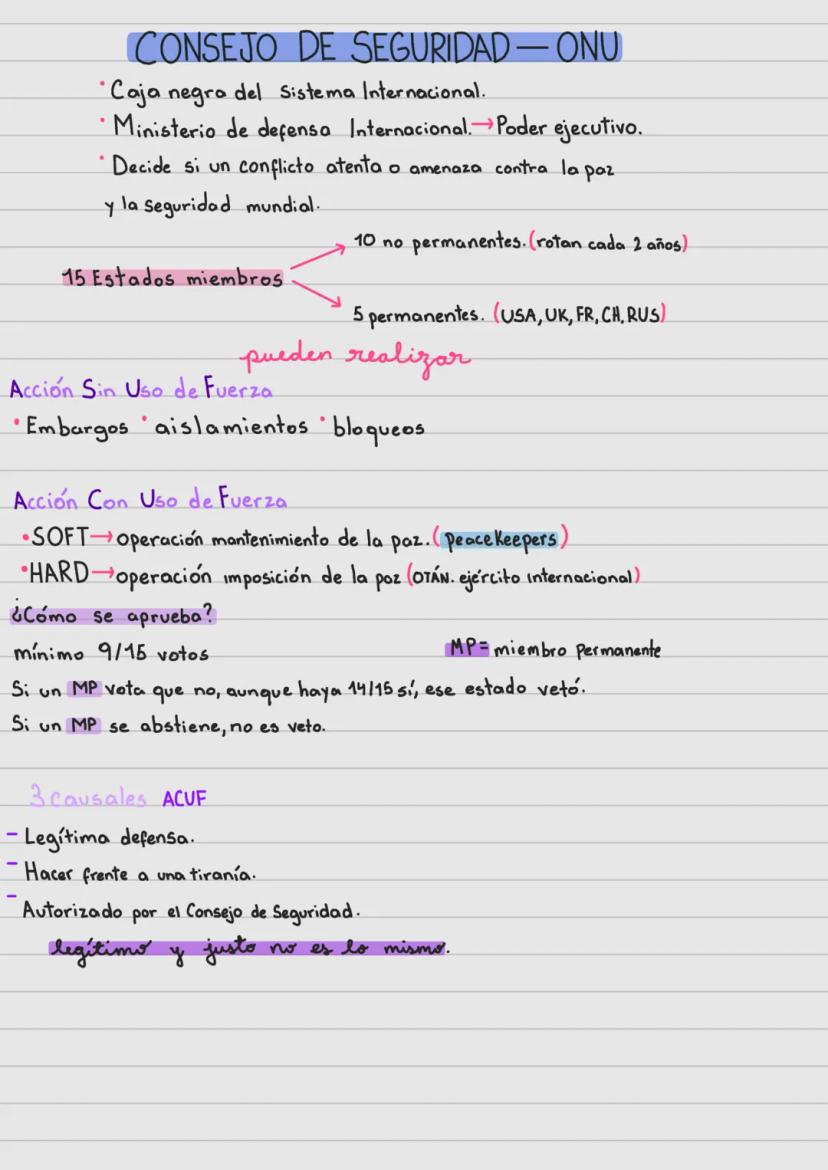 CONSEJO DE SEGURIDAD — ONU
· Caja negra del Sistema Internacional.
· Ministerio de defensa Internacional. → Poder ejecutivo.
· Decide si un conflicto atenta o amenaza contra la paz
y la seguridad mundial.
10 no permanentes. (rotan cada 2 años)
15 Estados miembros
5 permanentes. (USA, UK, FR, CH, RUS)
pueden realizar
Acción Sin Uso de Fuerza
· Embargos · aislamientos · bloqueos
Acción Con Uso de Fuerza
· SOFT → operación mantenimiento de la paz. (peaceKeepers)
· HARD → operación imposición de la paz (OTÁN. ejército internacional)
¿Cómo se aprueba?
mínimo 9/15 votos MP = miembro permanente
Si un MP vota que no, aunque haya 14/15 sí, ese estado vetó.
Si un MP se abstiene, no es veto.
3 causales ACUF
- Legítima defensa.
- Hacer frente a una tiranía.
- Autorizado por el Consejo de Seguridad.
legítimo y justo no es lo mismo.